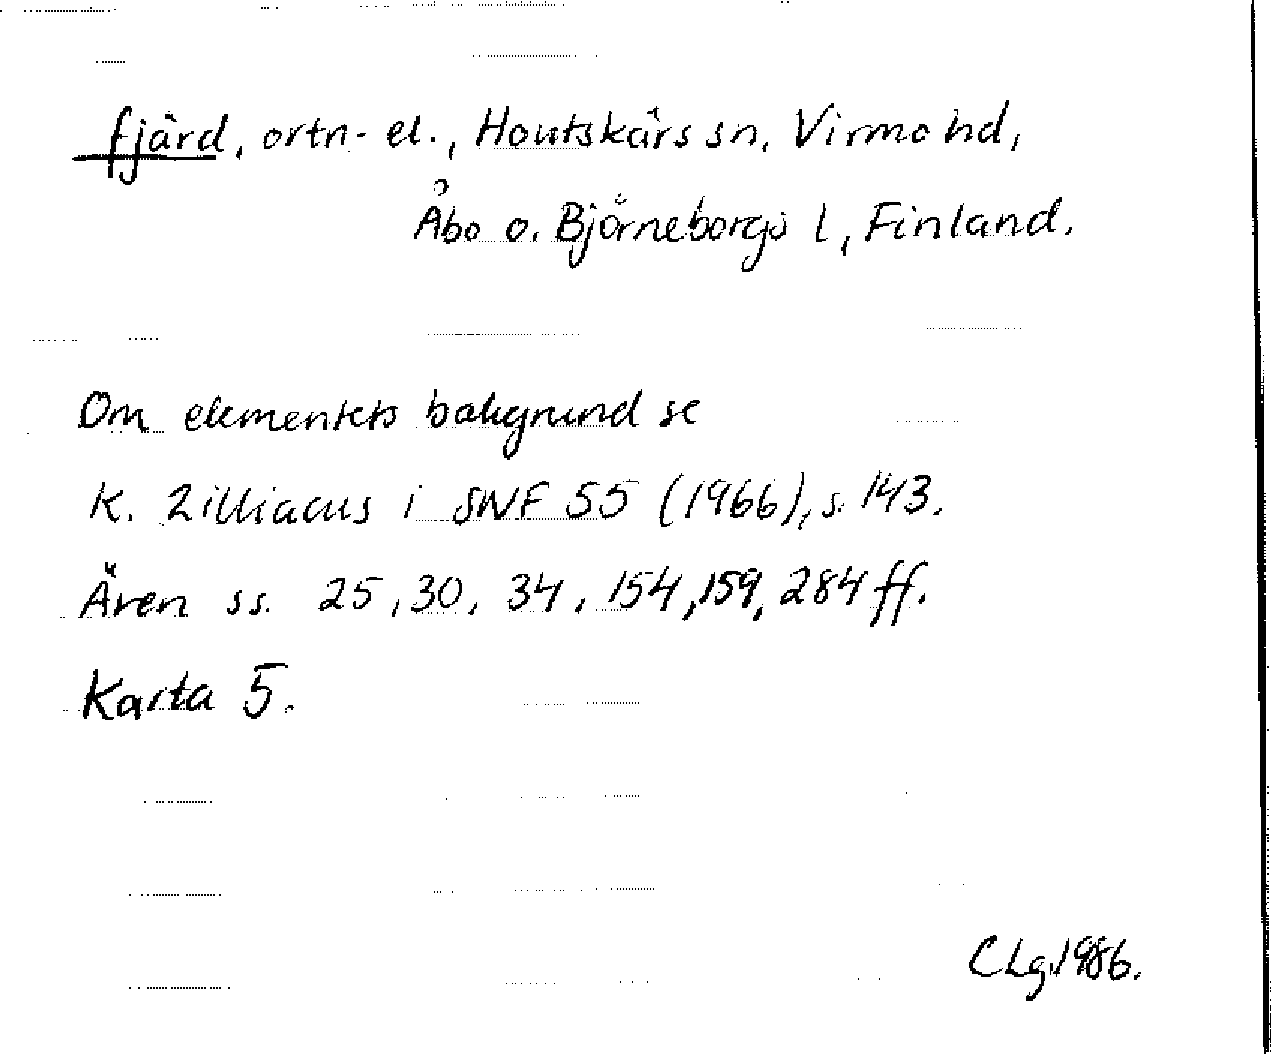 fjärd, ortn-el., Houtskärs sn, Virmo hd,
Åbo o. Björneborgs l, Finland.
Om elementets bakgrund se
K. Zilliacus i SNF 55 (1966), s. 143.
Även ss. 25, 30, 34, 154, 159, 284 ff.
Karta 5.
CLg. 1986.